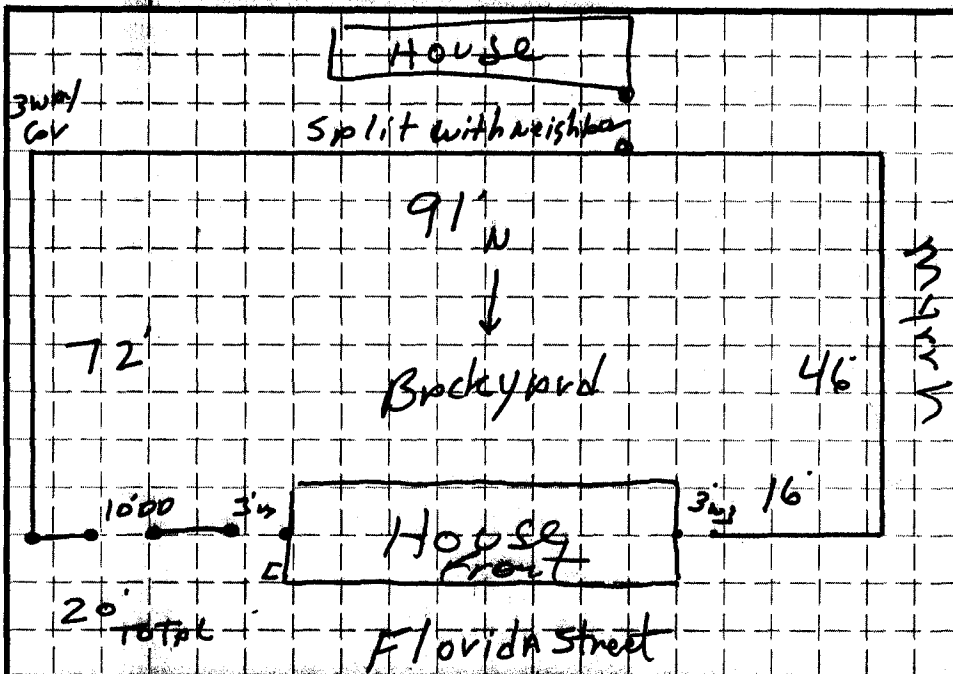 House
Split with neighbor
91'
N
72'
Backyard
46'
10'DD
16'
House
Front
20'
Total
Florida Street